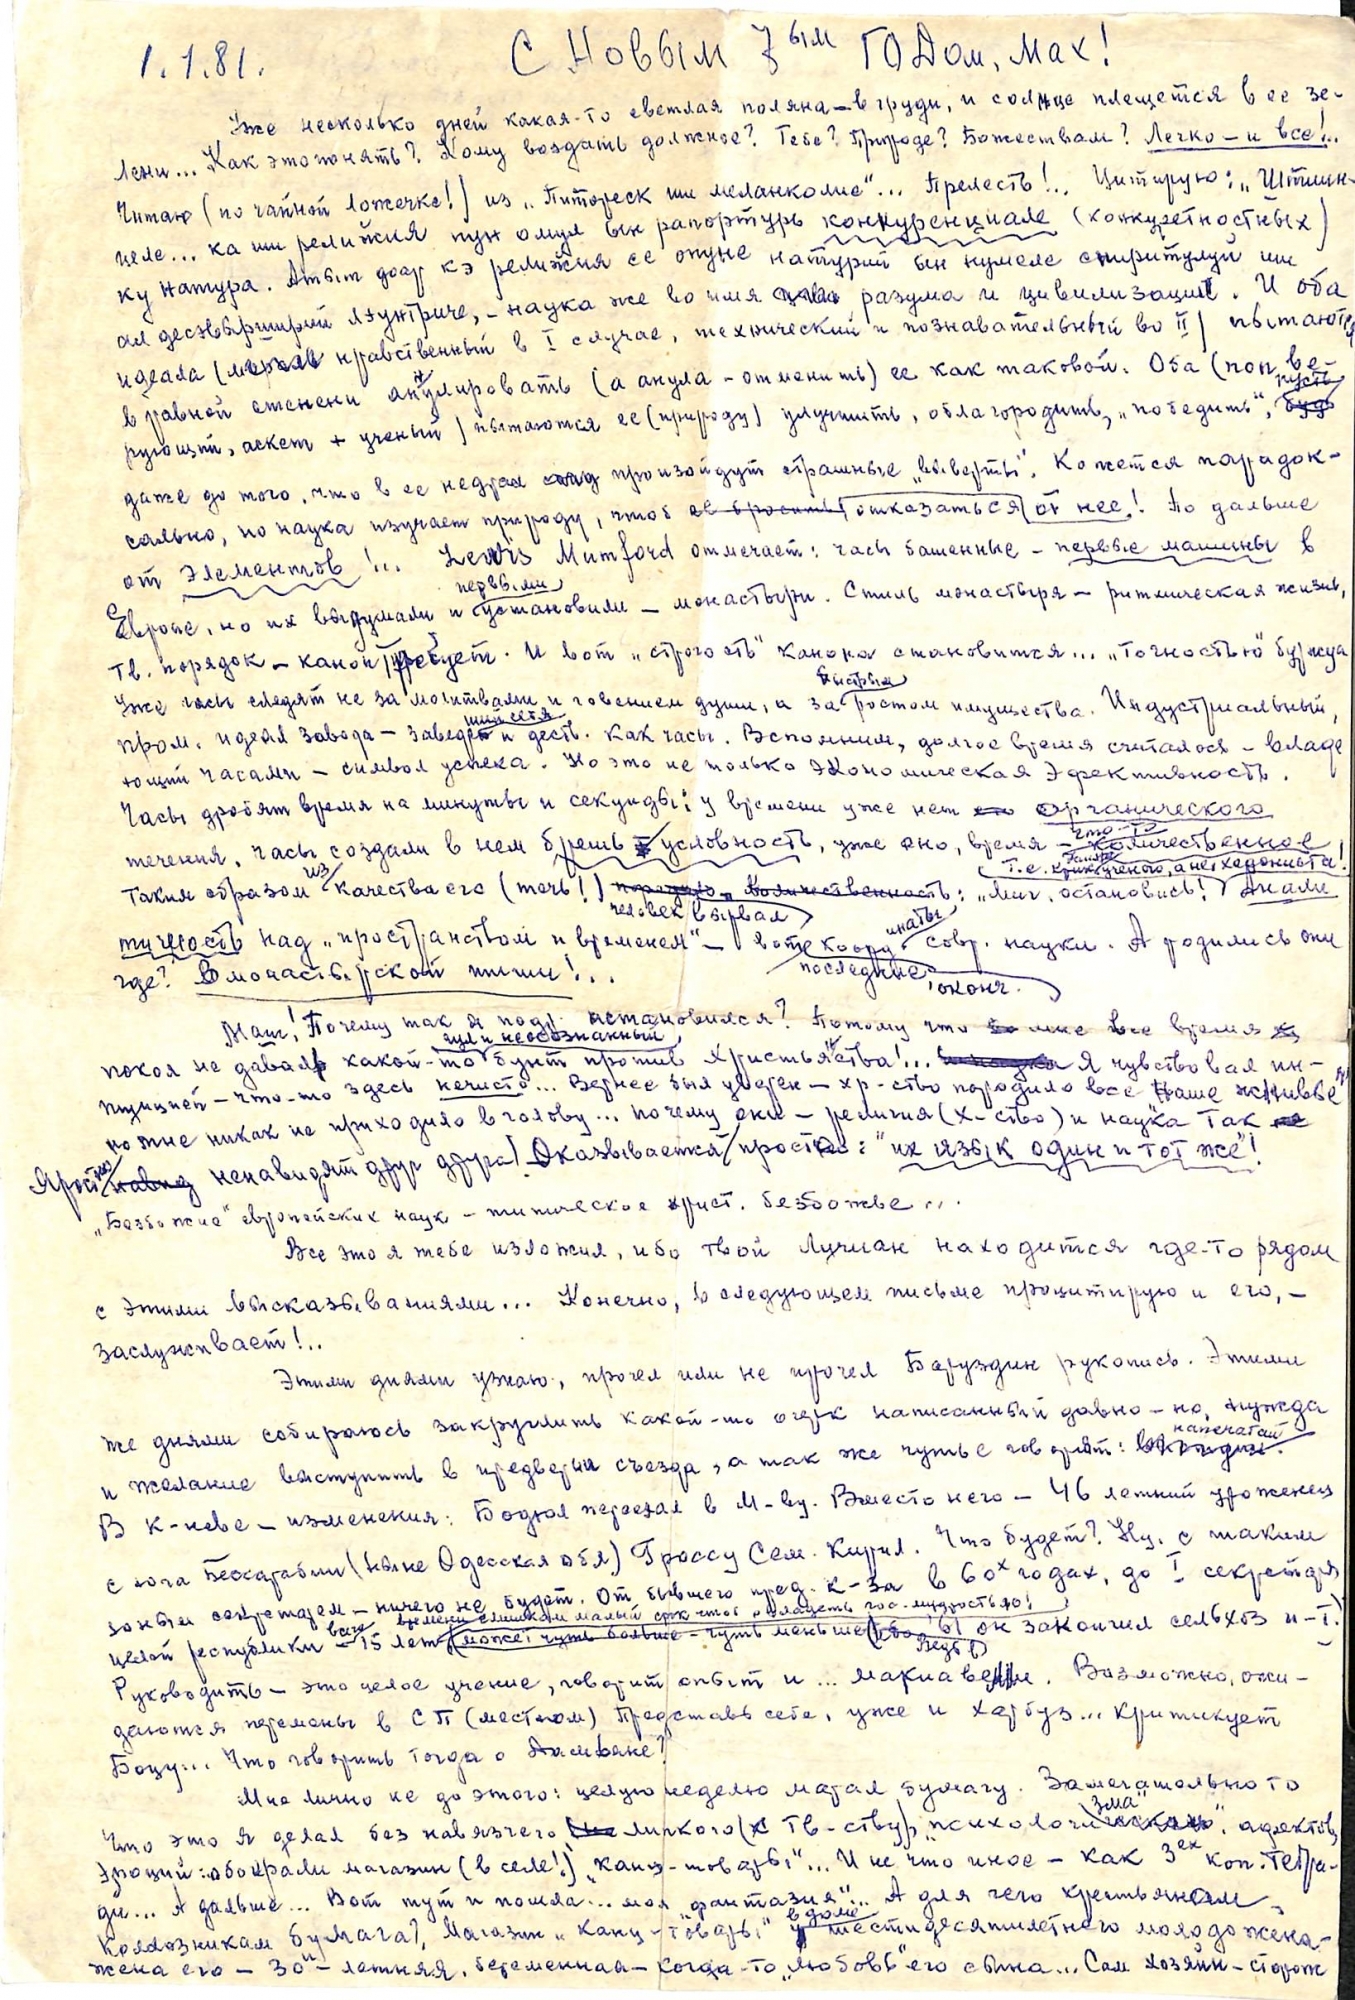 1.1.81. С Новым 7ым ГОДОМ, Мах!
Уже несколько дней какая-то светлая поляна – в груди, и солнце плещется в ее зе-
лени... Как это понять? Кому воздать должное? Тебе? Природе? Божествам? Легко – и все!..
Читаю (по чайной ложечке!) из „Питореск ши меланколие"... Прелесть!.. Цитирую: „Штиин-
целе... ка ши релижия пун омул ын рапортурь конкуренциале (конкурентностных)
ку натура. Атыт доар кэ релижия се опуне натурий ын нумеле спиритулуй ши
ал десэвырширий лэунтриче, – наука же во имя разума и цивилизации. И оба
идеала (нравственный в I случае, технический и познавательный во II) пытаются
в равной степени аннулировать (а анула – отменить) ее как таковой. Оба (поп ве-
рующий, аскет + ученый) пытаются ее (природу) улучшить, облагородить, „победить", пусть
даже до того, что в ее недрах произойдут страшные „выверты". Кажется парадок-
сально, но наука изучает природу, чтоб отказаться от нее! По дальше
от элементов!... Lewis Mumford отмечает: часы башенные – первые машины в
Европе, но их выдумали и первыми установили – монастыри. Стиль монастыря – ритмическая жизнь,
тв. порядок – канон требует. И вот „строгость" канона становится... „точностью" буржуа
Уже часы следят не за молитвами и говением души, а за быстрым ростом имущества. Индустриальный,
пром. идеал завода – и деств. как часы. Вспомним, долгое время считалося – владе
ющий часами – символ успеха. Но это не только экономическая эфективность.
Часы дробят время на минуты и секунды: у времени уже нет органического
течения, часы создали в нем брешь условность, уже оно, время – что-то количественное
Таким образом из качества его (течь!) человек вырвал: „Миг, остановись!
над „пространством и временем" – совр. науки. А родились они
где? В монастырской тиши!...
Маш! Почему так я подр. остановился? Потому что мне все время
покоя не давал какой-то бунт против христьянства!... Я чувствовал ин-
туицией – что-то здесь нечисто... Вернее был уверен – хр-ство породило все наше
но мне никак не приходило в голову... почему они – религия (х-ство) и наука так
яростно ненавидят друг друга! Оказывается просто: „их язык один и тот же"!
„Безбожие" европейских наук – типическое христ. безбожье...
Все это я тебе изложил, ибо твой Лучиан находится где-то рядом
с этими высказываниями... Конечно, в следующем письме процитирую и его, –
заслуживает!..
Этими днями узнаю, прочел или не прочел Баруздин рукопись. Этими
же днями собираюсь закруглить какой-то очерк написанный давно – но, нужда
и желание выступить в предверии съезда, а так же чутье говорят: напечатай.
В К-неве – изменения: Бодюл переехал в М-ву. Вместо него – 46 летний уроженец
с юга Бессарабии (ныне Одесская обл.) Гроссу Сем. Кирил. Что будет? Ну, с таким
зоным секретарем – ничего не будет. От бывшего пред. к-за в 60х годах, до I секретаря
целой республики – всего 15 лет времени слишком малый срок чтоб овладеть гос-мудростью! он закончил сельхоз и-т.)
Руководить – это целое учение, говорит опыт и... макиавелли. Возможно, ожи-
даются перемены в СП (местном) Представь себе, уже и Харбуз... критикует
Боцу... Что говорить тогда о Дамьяне?
Мне лично не до этого: целую неделю марал бумагу. Замечательно то
что это я делал без навязчего липкого тв-ству, „психологизма", афектов,
эмоций: обокрали магазин (в селе!) „канц-товары"... И не что иное – как 3ех коп. тетра-
ди... А дальше... Вот тут и пошла... моя „фантазия"... А для чего крестьянам
колхозникам бумага?, Магазин „Канц-товары" в доме шестидесятилетнего молодожена –
жена его – 30и – летняя, беременная – когда-то „любовь" его сына... Сам хозяин – сторож